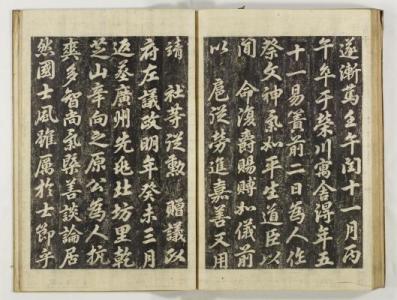 遂漸萬壬午閏十一月丙
午卒于榮川寓舍得年五
十一易簀前二日為人作
祭文神氣如平生道臣以
聞 命復爵賜賻如儀前
以 扈從勞進嘉善又用
靖 社等從勳 贈議政
府左議政明年癸未三月
返葬廣州先兆社坊里乾
芝山辛向之原公為人抗
爽多智尚氣槩善談論居
然國士風雖屬於士節乎